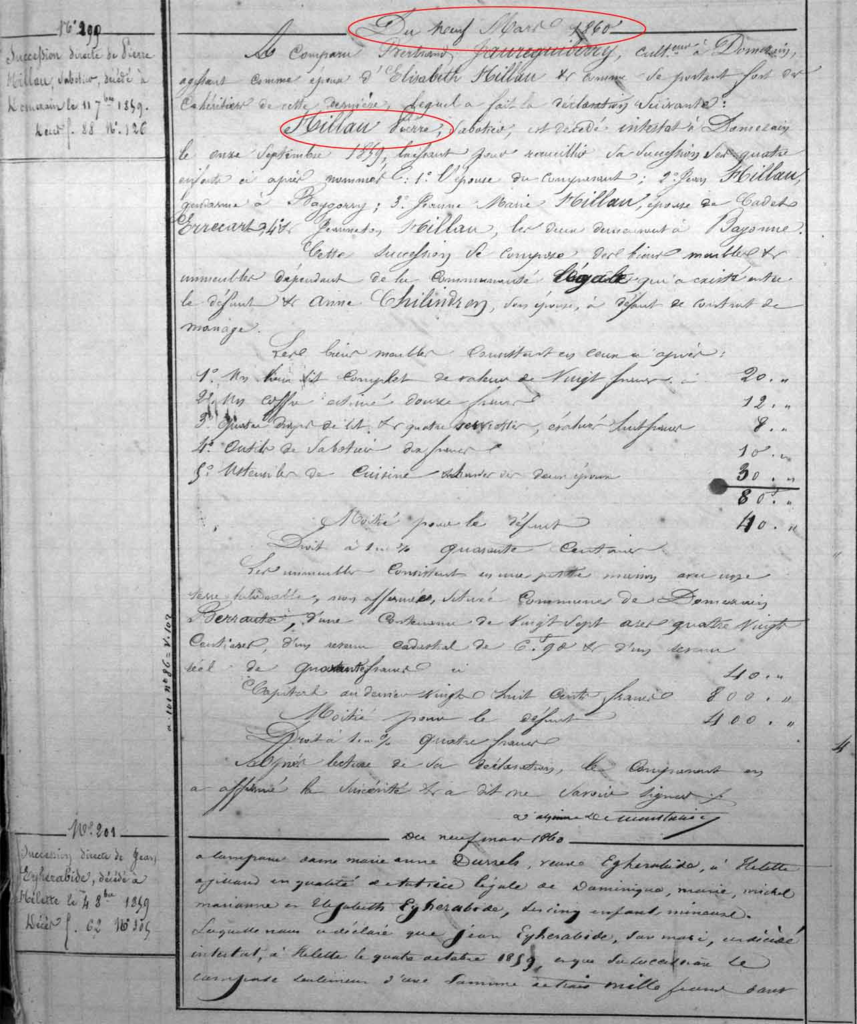 N° 200
Succession directe de Pierre
Hillau, sabotier, décédé à
Domezain le 11 7bre 1859.
Décès f. 88 N° 126
Du neuf Mars 1860
A Comparu Bertrand Jaureguiberry, cult.eur à Domezain,
agissant comme époux d'Elisabeth Hillau & comme se portant fort des
Cohéritiers de cette dernière, lequel a fait la déclaration suivante:
Hillau Pierre, Sabotier, est décédé intestat à Domezain
le onze Septembre 1859, laissant pour recueillir sa succession ses quatre
enfants ci après nommés: 1° l'épouse du comparant; 2° Jean Hillau,
gendarme à Baygorry; 3° Jeanne Marie Hillau, épouse de Cadet
Errecart, 4° Hillau, les deux demeurant à Bayonne.
Cette succession se compose des biens meubles &
immeubles dépendant de la Communauté légale qui a existé entre
le défunt & Anne Chilindron, son épouse, à défaut de contrat de
mariage.
Les biens meubles Consistent en ceux ci après:
1° Un lit complet de valeur de Vingt francs 20 "
2° Un coffre estimé douze francs 12 "
3° quatre draps de lit & quatre serviettes, évalués huit francs 8 "
4° Outils de Sabotier dix francs 10 "
5° Ustensiles de Cuisine 30 "
80 "
Moitié pour le défunt 40 "
Droit à 1 un % quarante Centimes
Les immeubles Consistent en une petite maison avec une
terre labourable, non affermées, situées Communes de Domezain
Berraute, d'une Contenance de Vingt Sept ares quatre Vingt
Centiares, d'un revenu cadastral de 6f 98 & d'un revenu
réel de quarante francs ci 40 "
Capital au denier Vingt huit Cents francs 800 "
Moitié pour le défunt 400 "
Droit à 1 un % quatre francs
Après lecture de sa déclaration, le Comparant en
a affirmé la sincérité & a dit ne savoir signer
N° 201
Succession directe de Jean
Eyherabide, décédé à
Hélette le 4 8bre 1859
Décès f. 62 N° 105
Du neuf mars 1860
a Comparu dame marie anne veuve Eyherabide, à Helette
agissant en qualité de tutrice légale de Dominique, marie, michel
marianne et Elisabeth Eyherabide, ses cinq enfants mineurs.
Laquelle nous a déclaré que jean Eyherabide, son mari, est décédé
intestat, à Helette le quatre octobre 1859, et que sa succession se
compose seulement d'une Somme de trois mille francs dont
4